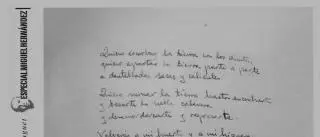 ESPECIAL MIGUEL HERNÁNDEZ
Quiero escarbar la tierra con los dientes,
quiero apartar la tierra parte a parte
a dentelladas secas y calientes.
Quiero minar la tierra hasta encontrarte
y besarte la noble calavera
y desamordazarte y regresarte.
Volverás a mi huerto y a mi higuera